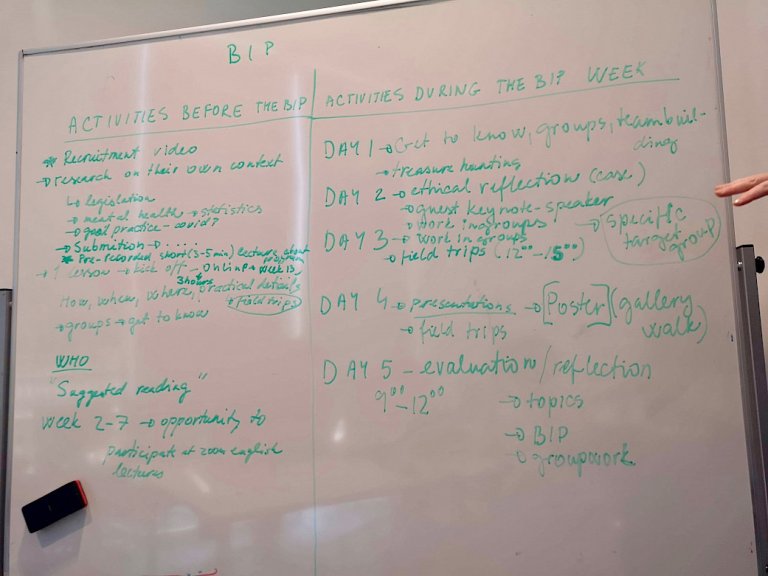 BIP
ACTIVITIES BEFORE THE BIP
* Recruitment video
→ research on their own context
↳ legislation
→ mental health → statistics
→ good practice - covid?
→ Submition → . . . .
* Pre-recorded short (3-5 min) lecture about
→ 1 lesson → kick off - online → week 13,
3 hours
How, when, where, practical details
→ field trips
→ groups → get to know
WHO
"Suggested reading"
week 2-7 → opportunity to
participate at zoom english
lectures
ACTIVITIES DURING THE BIP WEEK
DAY 1 → Get to know, groups, teambuil-
ding
→ treasure hunting
DAY 2 → ethical reflection (case)
→ guest keynote-speaker
→ work in groups → specific
target
group
DAY 3 → work in groups
→ field trips (12⁰⁰-15⁰⁰)
DAY 4 → presentations → [Poster] (gallery
walk)
→ field trips
DAY 5 - evaluation / reflection
9⁰⁰-12⁰⁰
→ topics
→ BIP
→ groupwork